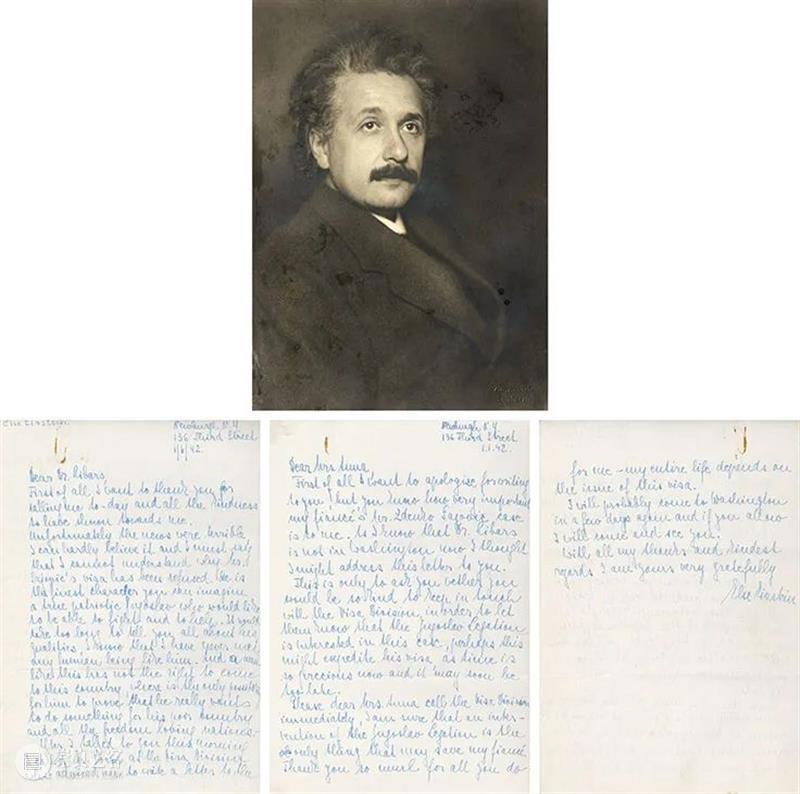 Newburgh N.Y
136 Third Street
1/6/42.
Dear Dr. Ribars,
First of all I want to thank you for
talking me to-day and all the kindness
to have shown towards me.
Unfortunately the news were terrible
I can hardly believe it and I must say
that I cannot understand why Mr.
visa has been refused. He is
the finest character you can imagine
a true patriotic Yugoslav who would like
to be able to fight and to help. It would
take too long to tell you all about his
qualities, I know that I have never met
any human being like him. And a man
like this has not the right to come
to this country, where is the only
for him to prove that he really wants
to do something for his poor country
and all the freedom loving nations.
I talked to you this morning
at the Visa Division
to write a letter to the
Newburgh N.Y
136 Third Street
1.1.42.
Dear Mrs Anna,
First of all I want to apologise for writing
to you, but you know how very important
my fiancé's Mr. Zdenko case
is to me. As I know that Dr. Ribars
is not in Washington now I thought
I might address this letter to you.
This is only to ask you wether you
would be so kind to keep in touch
with the Visa Division, in order to let
them know that the Yugoslav Legation
is interested in this case, perhaps this
might expedite his visa, as time is
so precious now and it may soon be
too late.
Please dear Mrs Anna call the Visa Division
immediately, I am sure that an inter-
vention of the Yugoslav Legation is the
only thing that may save my fiancé.
Thank you so much for all you do
for me – my entire life depends on
the issue of this visa.
I will probably come to Washington
in a few days again and if you allow
I will come and see you.
With all my thanks and kindest
regards I am yours very gratefully
Einstein